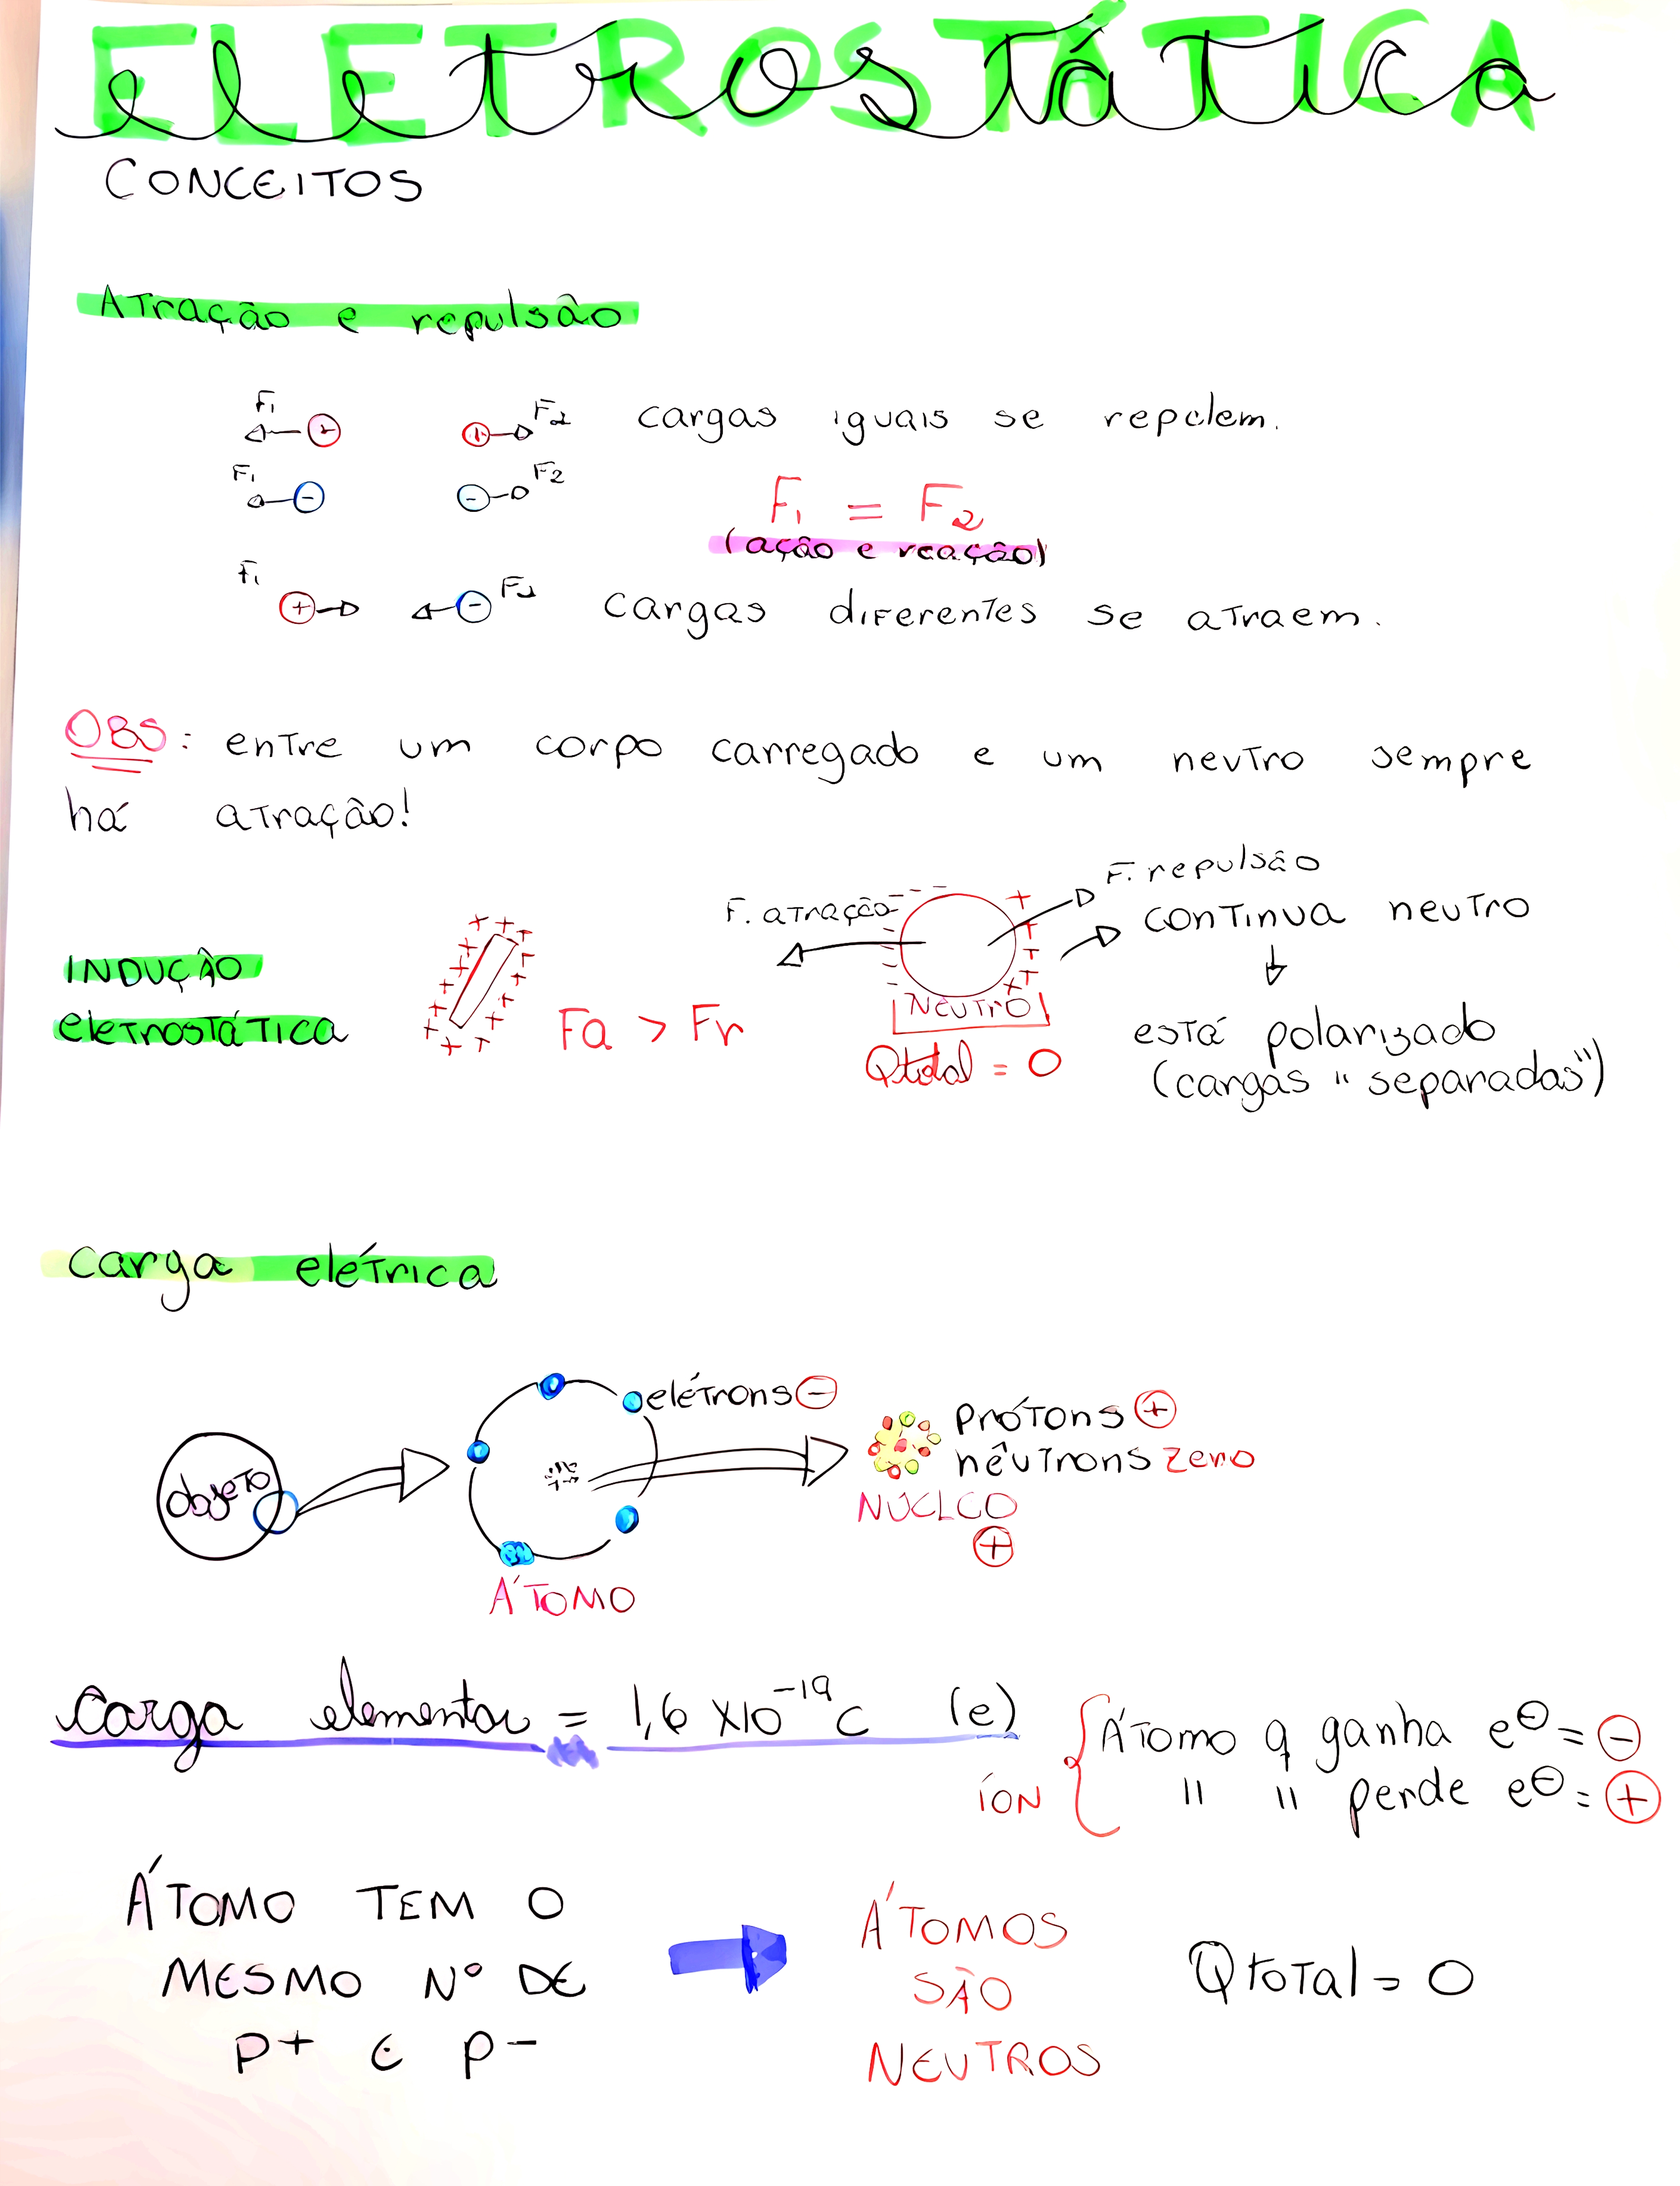 ELETROSTÁTICA
eletrostática
CONCEITOS
Atração e repulsão
F1 + + F2 cargas iguais se repelem.
F1 - - F2
F1 = F2
(ação e reação)
F1 + - F2 cargas diferentes se atraem.
OBS: entre um corpo carregado e um neutro sempre
há atração!
F. repulsão
F. atração
continua neutro
INDUÇÃO
eletrostática
Fa > Fr
Neutro
Qtotal = 0
está polarizado
(cargas "separadas")
carga elétrica
elétrons -
prótons +
nêutrons zero
objeto
NÚCLEO
+
ÁTOMO
Carga elementar = 1,6 x10⁻¹⁹ C (e)
íON
Átomo q ganha e⊖ = -
" " perde e⊖ = +
ÁTOMO TEM O
MESMO Nº DE
P+ E P-
ÁTOMOS
SÃO
NEUTROS
Qtotal = 0